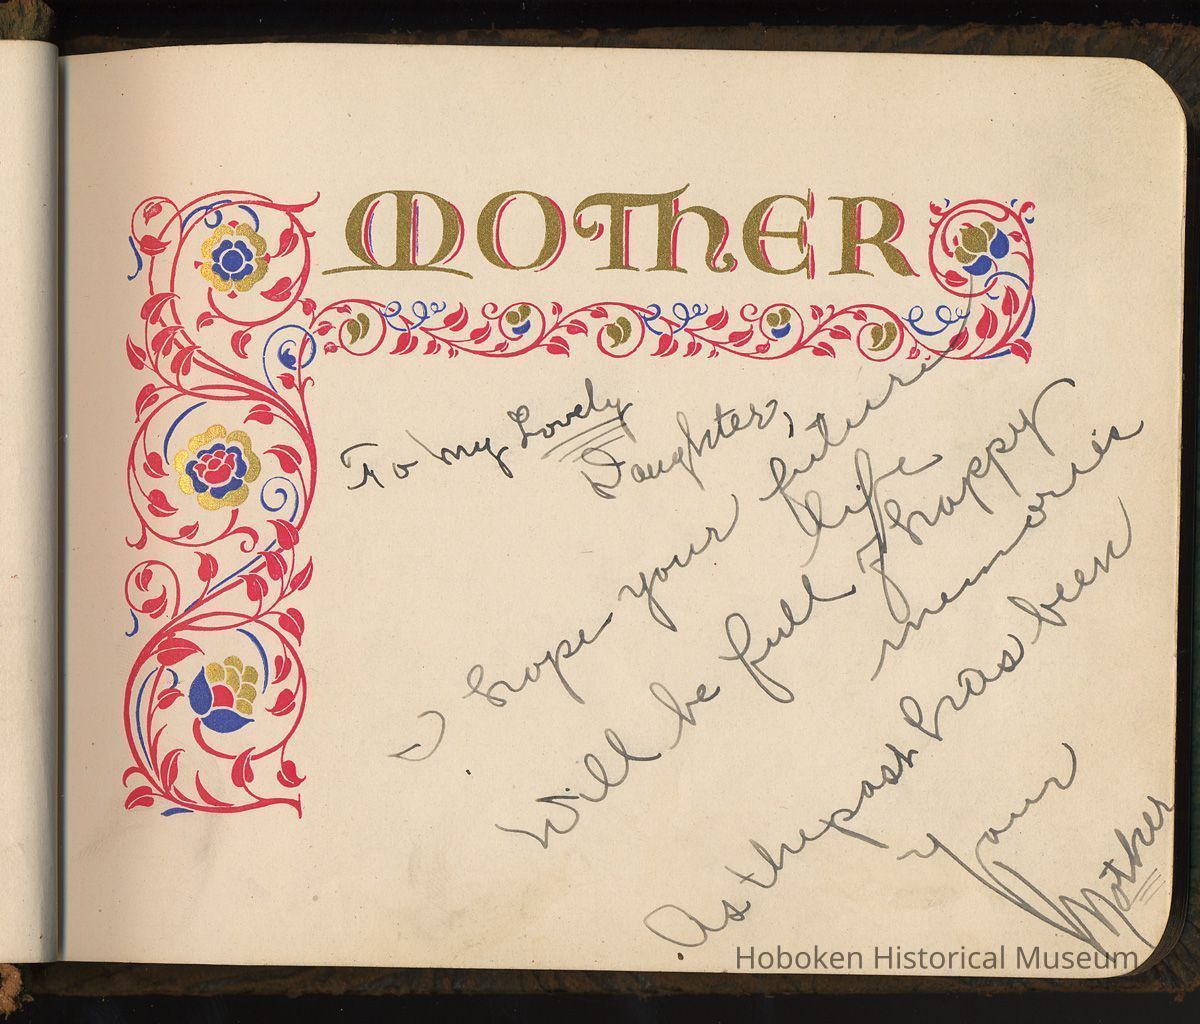 MOTHER
To my Lovely
Daughter,
I hope your future
life
Will be full of happy
memories
As the past has been
Your
Mother
Hoboken Historical Museum